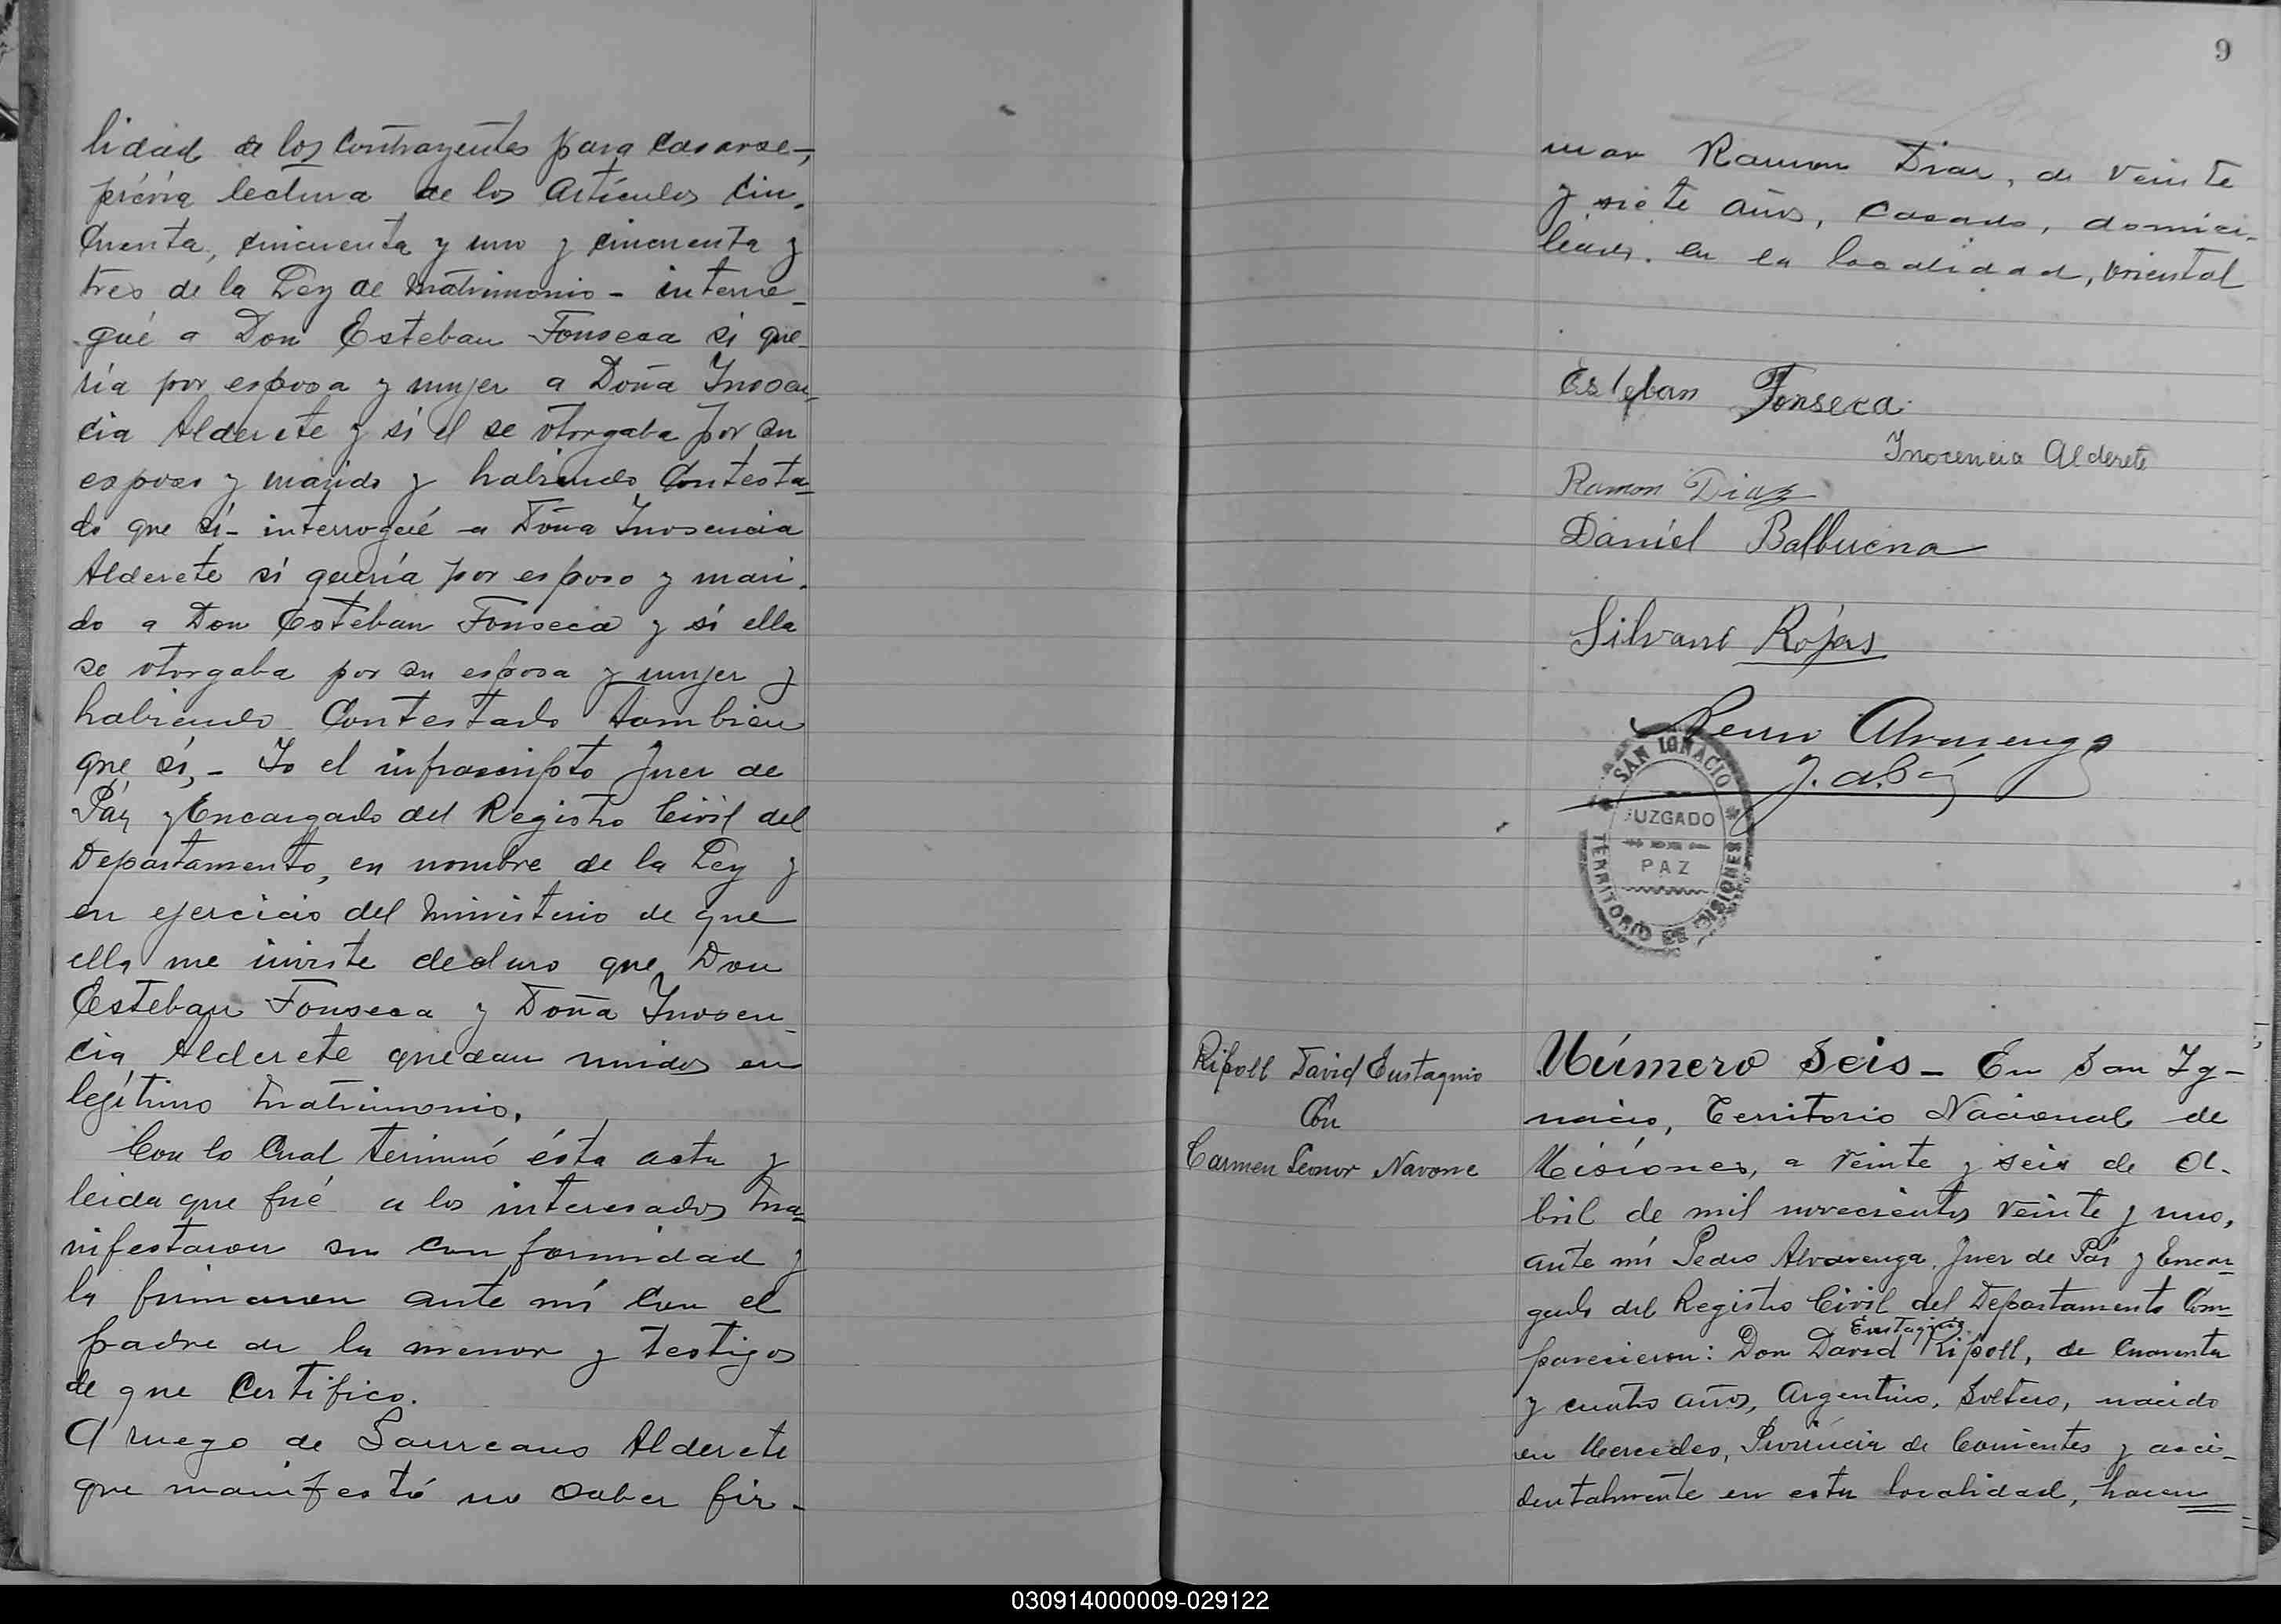 lidad de los Contrayentes para casarse-,
prévia lectura de los Artículos Cin-
cuenta, cincuenta y uno y cincuenta y
tres de la Ley de Matrimonio - interro-
gué a Don Esteban Fonseca si que-
ría por esposa y mujer a Doña Inosen-
cia Alderete y si él se otorgaba por su
esposo y marido y habiendo Contesta-
do que sí - interrogué a Doña Inosencia
Alderete si quería por esposo y mari-
do a Don Esteban Fonseca y si ella
se otorgaba por su esposa y mujer y
habiendo Contestado tambien
que sí, - Yo el infrascripto Juez de
Páz y Encargado del Registro Civil del
Departamento, en nombre de la Ley y
en ejercicio del Ministerio de que
ella me inviste declaro que Don
Esteban Fonseca y Doña Inosen-
cia Alderete quedan unidos en
legítimo Matrimonio.
Con lo Cual terminó ésta acta y
leida que fué a los interesados Ma-
nifestaron su conformidad y
la firmaron ante mí Con el
padre de la menor y testigos
de que Certifico.
A ruego de Laureano Alderete
que manifestó no saber fir-
9
mar Ramon Diaz, de veinte
y siete años, casado, domici-
liado en la localidad, Oriental
Esteban Fonseca
Inocencia Alderete
Ramon Diaz
Daniel Balbuena
Silvano Rojas
Pedro Alvarenga
J. de Páz
SAN IGNACIO
JUZGADO
PAZ
TERRITORIO DE MISIONES
Ripoll David Eustaquio
Con
Carmen Leonor Navone
Número Seis - En San Ig-
nacio, Territorio Nacional de
Misiones, a veinte y seis de A-
bril de mil novecientos veinte y uno,
ante mí Pedro Alvarenga, Juez de Páz y Encar-
gado del Registro Civil del Departamento Com-
Eustaquio
parecieron: Don David Ripoll, de Cuarenta
y cuatro años, Argentino, Soltero, nacido
en Mercedes, Província de Corrientes y acci-
dentalmente en esta localidad, hacen
030914000009-029122